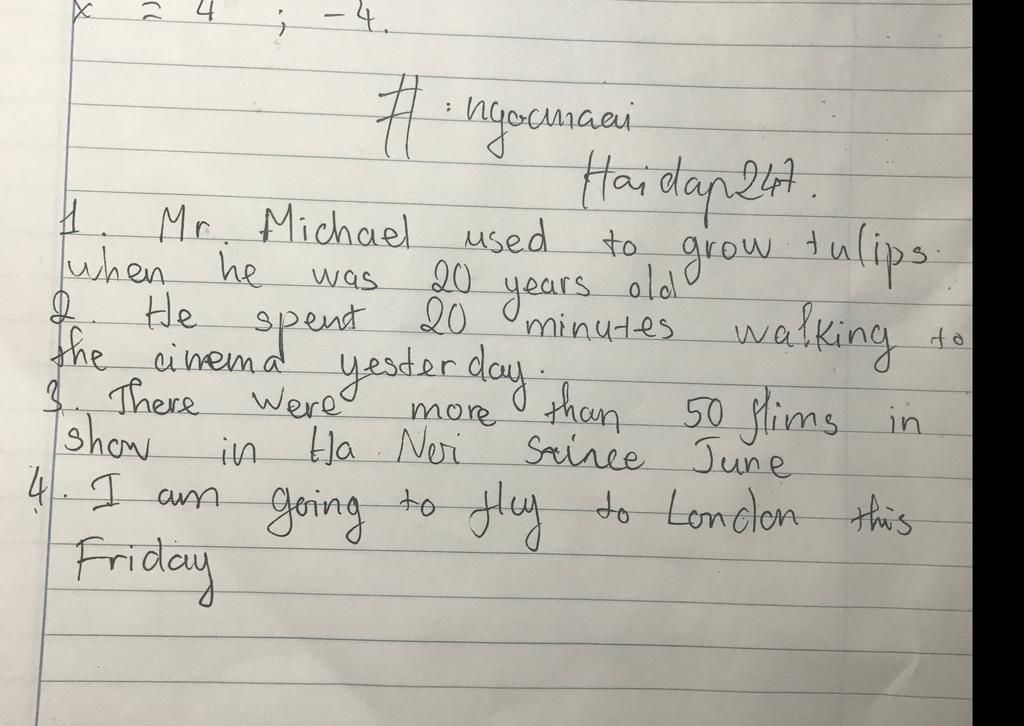 x = 4 ; -4.
# : ngocmaei
Hoidap247.
1. Mr. Michael used to grow tulips.
when he was 20 years old
2. He spent 20 minutes walking to
the cinema yesterday.
3. There were more than 50 flims in
show in Ha Noi since June
4. I am going to fly to London this
Friday